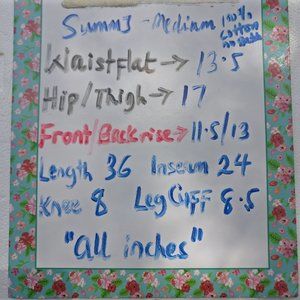 Summ3 - Medium 100%
cotton
Waistflat → 13.5
Hip/Thigh → 17
Front/Backrise → 11.5/13
Length 36 Inseam 24
Knee 8 Leg Cuff 8.5
"all inches"